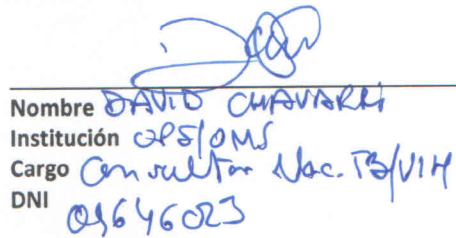 Nombre DAVID CHAVARRI
Institución OPS/OMS
Cargo Consultor Nac. TB/VIH
DNI
09646023